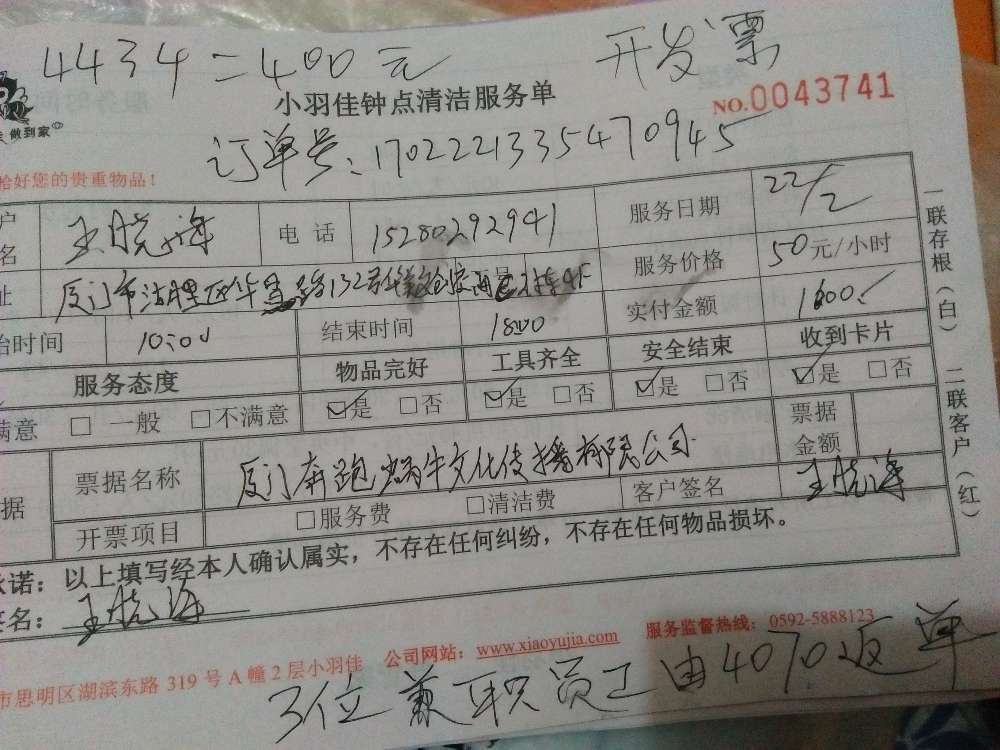 4434=400元 开发票
做到家
小羽佳钟点清洁服务单 NO.0043741
订单号:170222133547094５
恰好您的贵重物品!
户名 王晓海 电话 15280292941 服务日期 22/2
址 厦门市湖里区华 路132号 服务价格 50元/小时
始时间 10:00 结束时间 18:00 实付金额 1600
服务态度 物品完好 工具齐全 安全结束 收到卡片
满意 □ 一般 □不满意 ☑是 □否 ☑是 □否 ☑是 □否 ☑是 □否
据 票据名称 厦门奔跑蜗牛文化传播有限公司 票据金额
开票项目 □服务费 □清洁费 客户签名 王晓海
承诺:以上填写经本人确认属实,不存在任何纠纷,不存在任何物品损坏。
签名: 王晓海
一联存根(白) 二联客户(红)
市思明区湖滨东路 319 号 A 幢 2 层小羽佳 公司网站:www.xiaoyujia.com 服务监督热线:0592-5888123
3位兼职员工由4070返单